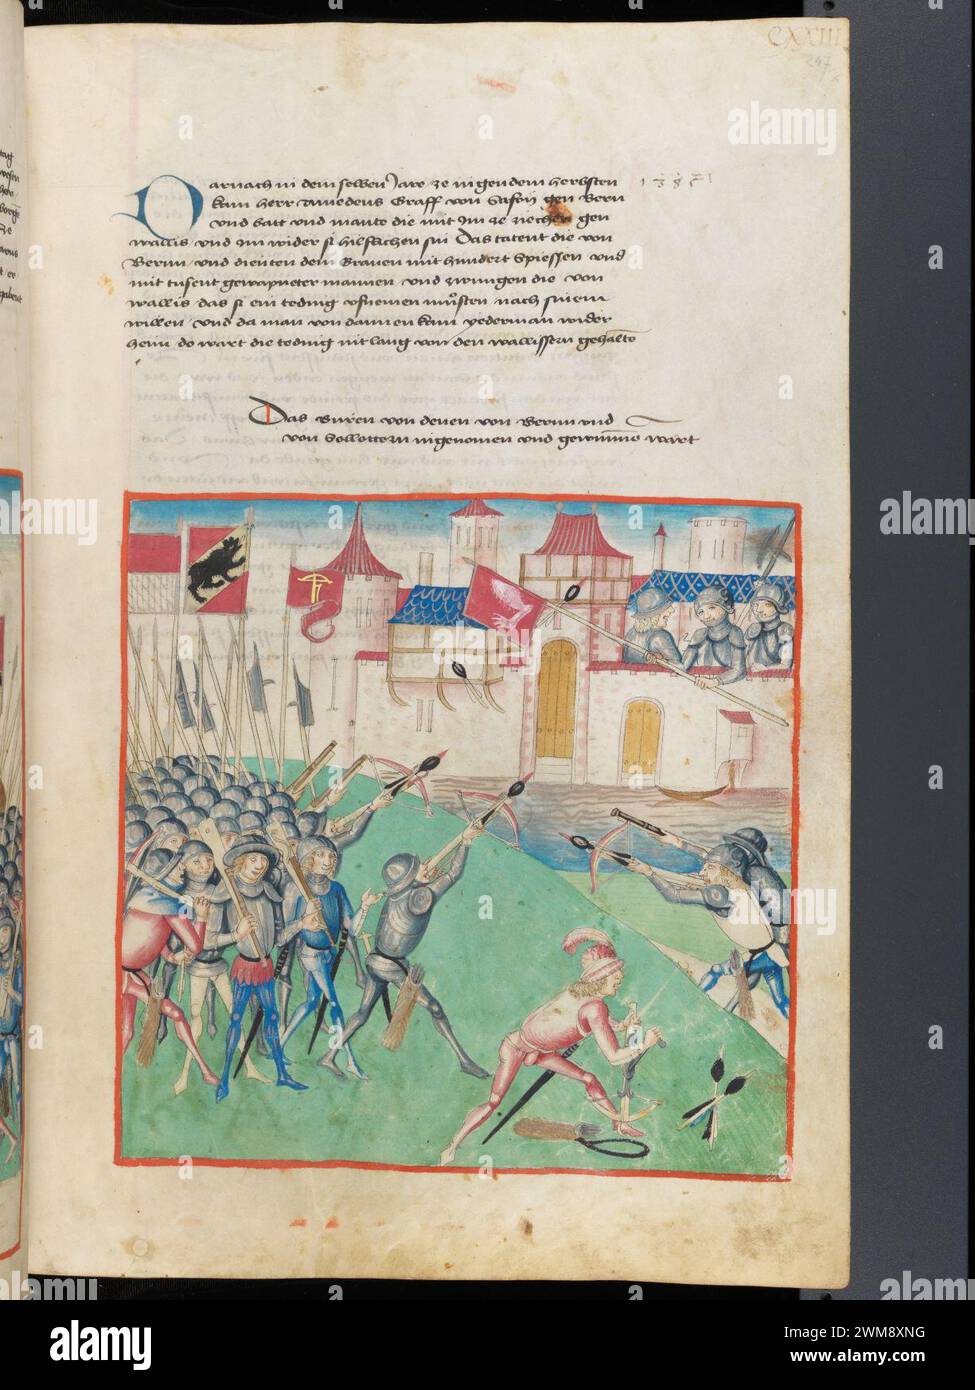 CXXIII
247
Darnach in dem selben Jare ze ingendem herbsten
kam herr Amedeus Graff von Safoy gen Bern
und batt und mante die mit Im ze ziechen gen
wallis und Im wider si hilfflichen sin Das tatent die von
Bernn und dienten dem Grauen mit hundert Spiessen und
mit tusent gewapneter mannen und zwungen die von
wallis das si ein teding ufnemen muͦsten nach sinem
willen und da man von dannen kam yederman wider
heim do wart die teding nit lang von den wallissern gehalten
Das Buren von denen von Bernn und
von Sollottern ingenomen und gewunnen wart
alamy
alamy
Image ID: 2WM8XNG
www.alamy.com